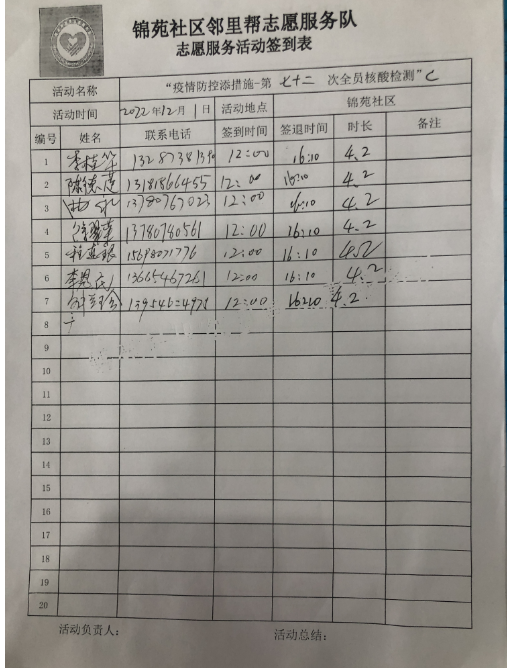 锦苑社区邻里帮志愿服务队
志愿服务活动签到表
活动名称 “疫情防控添措施-第 七十二 次全员核酸检测” C
活动时间 2022年12月1日 活动地点 锦苑社区
编号 姓名 联系电话 签到时间 签退时间 时长 备注
1 12:00 16:10 4.2
2 13181866455 12:00 16:10 4.2
3 13780767023 12:00 16:10 4.2
4 13780780561 12:00 16:10 4.2
5 15698071776 12:00 16:10 4.2
6 13665467261 12:00 16:10 4.2
7 12:00 4.2
8
9
10
11
12
13
14
15
16
17
18
19
20
活动负责人: 活动总结: